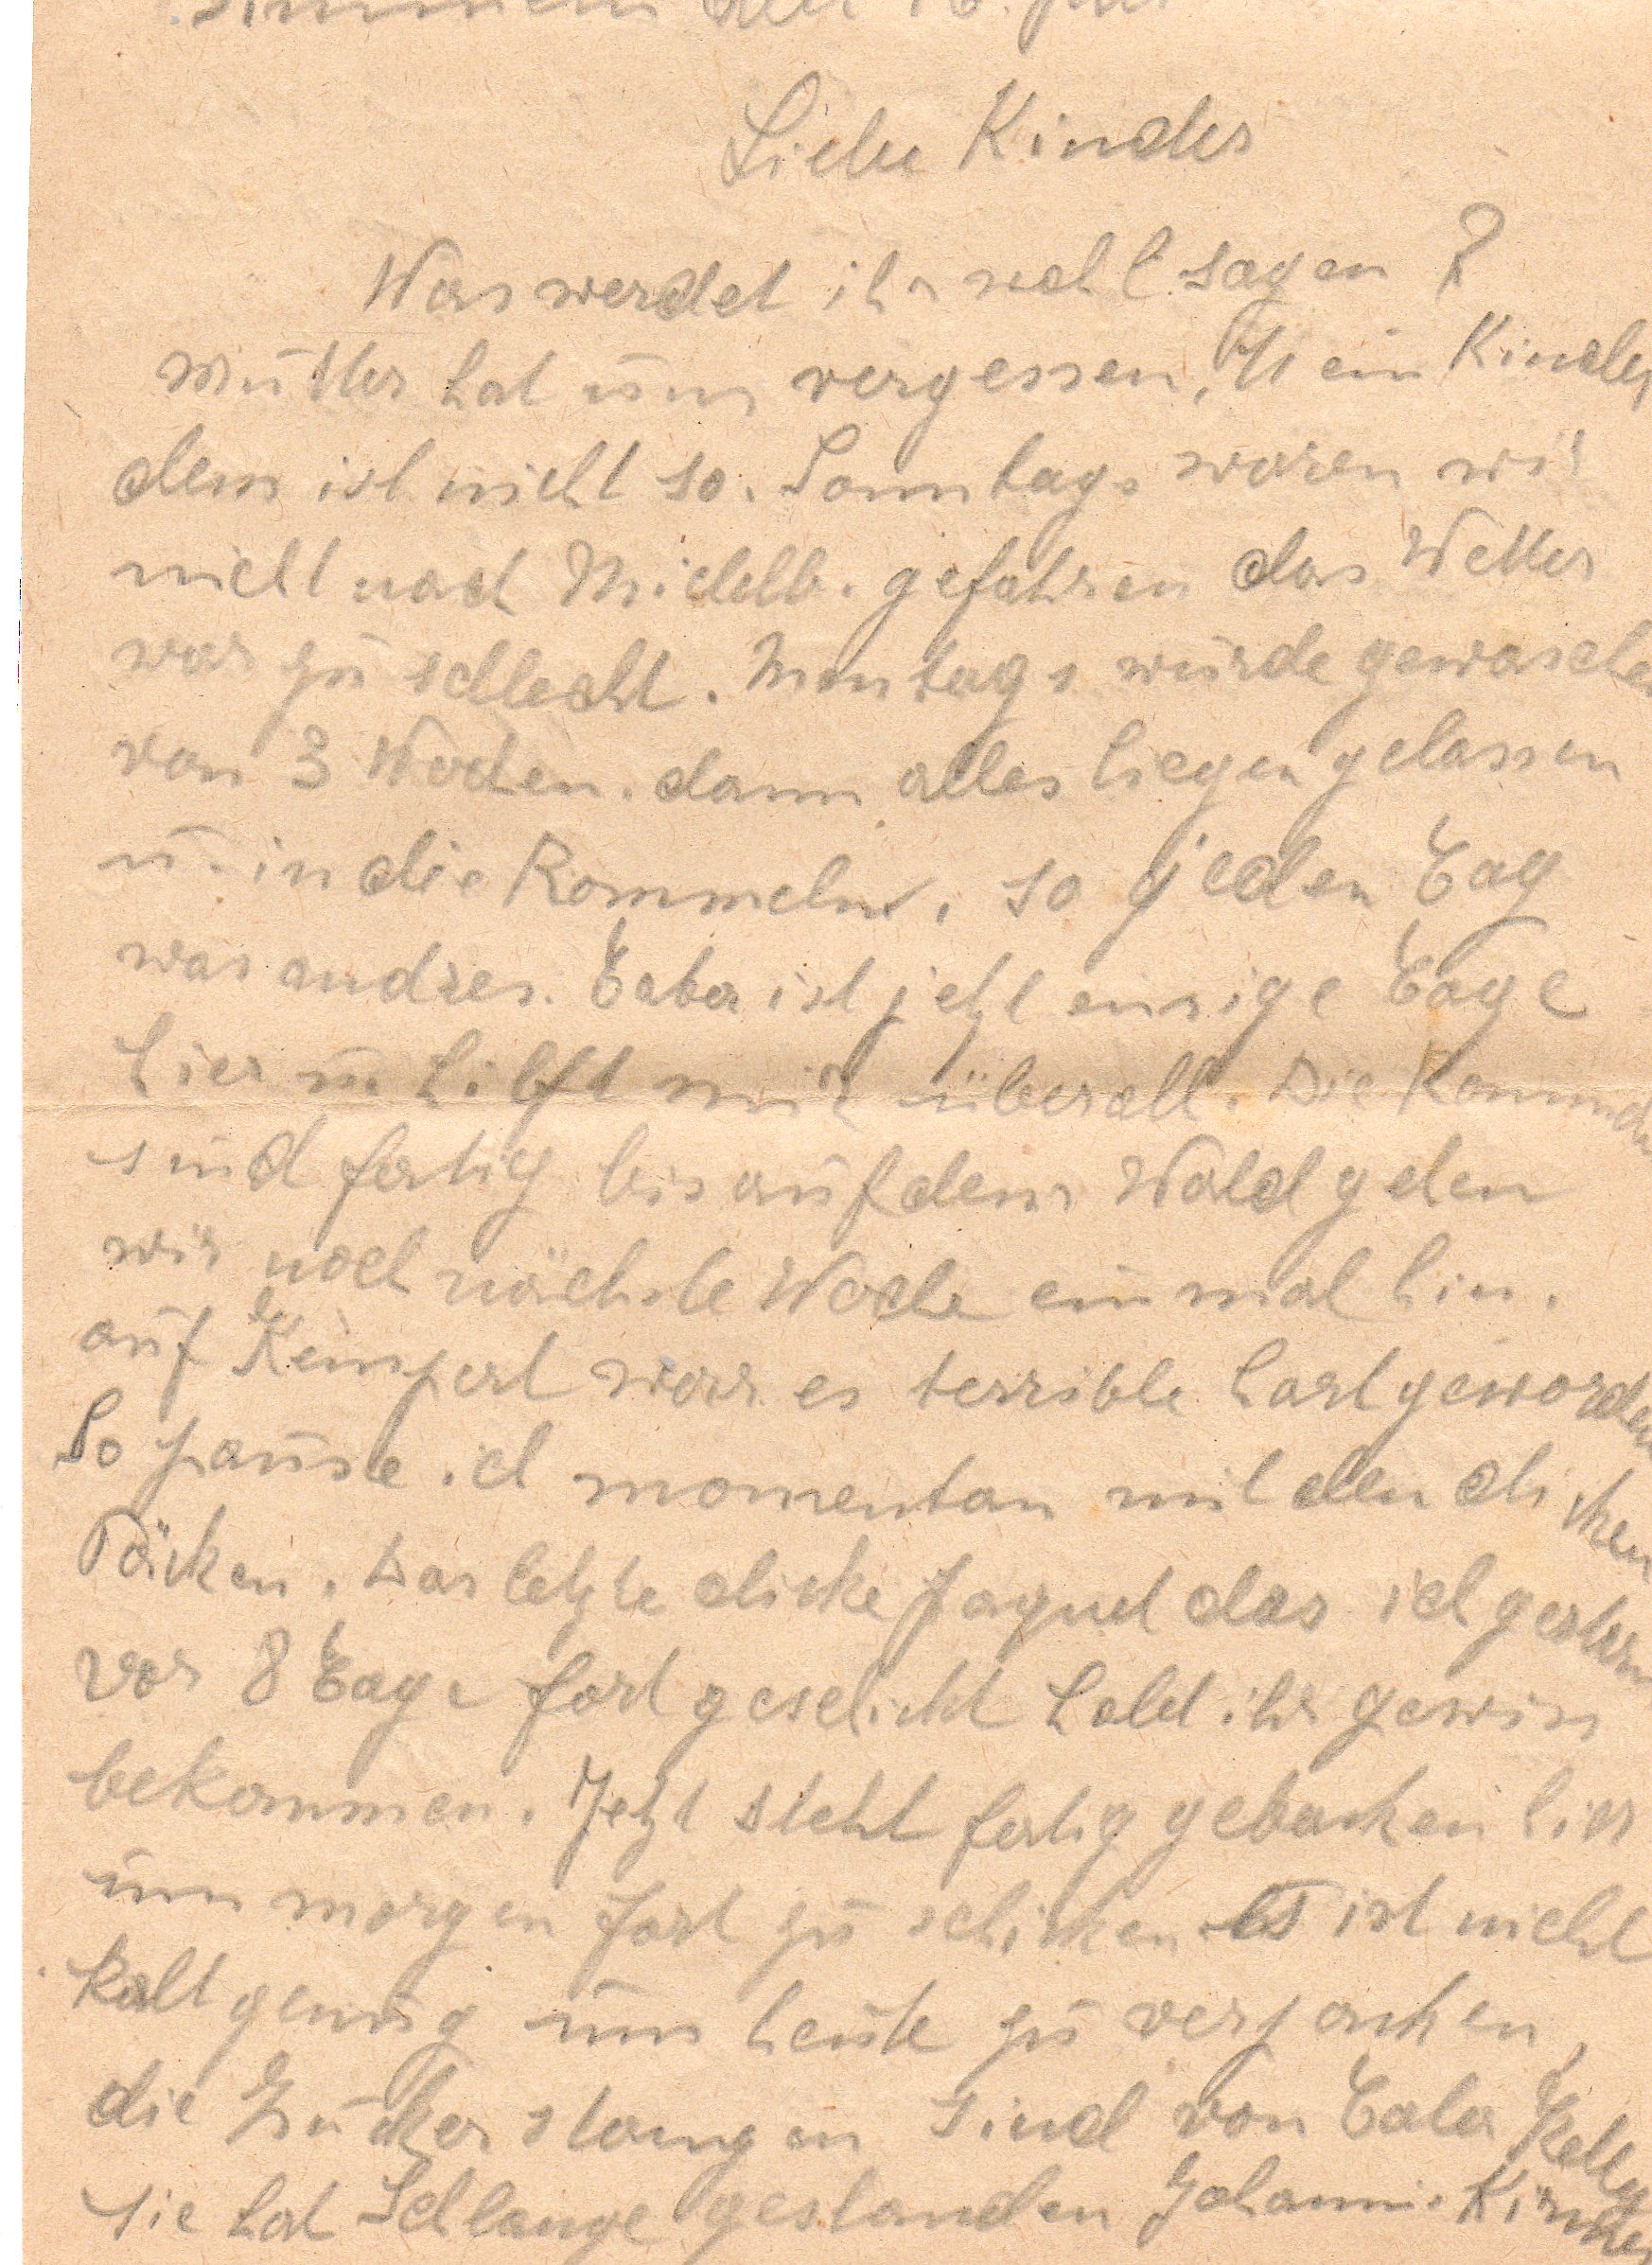 Liebe Kinder
Was werdet ihr wohl sagen?
mutter hat uns vergessen, Nein Kinder
dem ist nicht so. Sonntags waren wir
nicht nach Midelb. gefahren das Wetter
war zu schlecht. Montags wurde gewaschen
von 3 Wochen. dann alles liegen gelassen
u. in die Rommeln, so jeden Tag
was andres. ist jetzt einige Tage
hier u. hilft mir überall. Die
sind fertig bis auf dem Wald gehen
wir noch nächste Woche einmal hin.
auf war es terrible hart geworden
So pause ich momentan mit den dicken
Päcken. Das letzte dicke Paquet das ich gestern
vor 8 Tage fort geschickt habt ihr gewiss
bekommen. Jetzt steht fertig gebacken hier
um morgen fort zu schicken es ist nicht
kalt genug um heute zu verpacken,
die Zuckerstangen sind von
sie hat Schlange gestanden Johanni. Kirmes